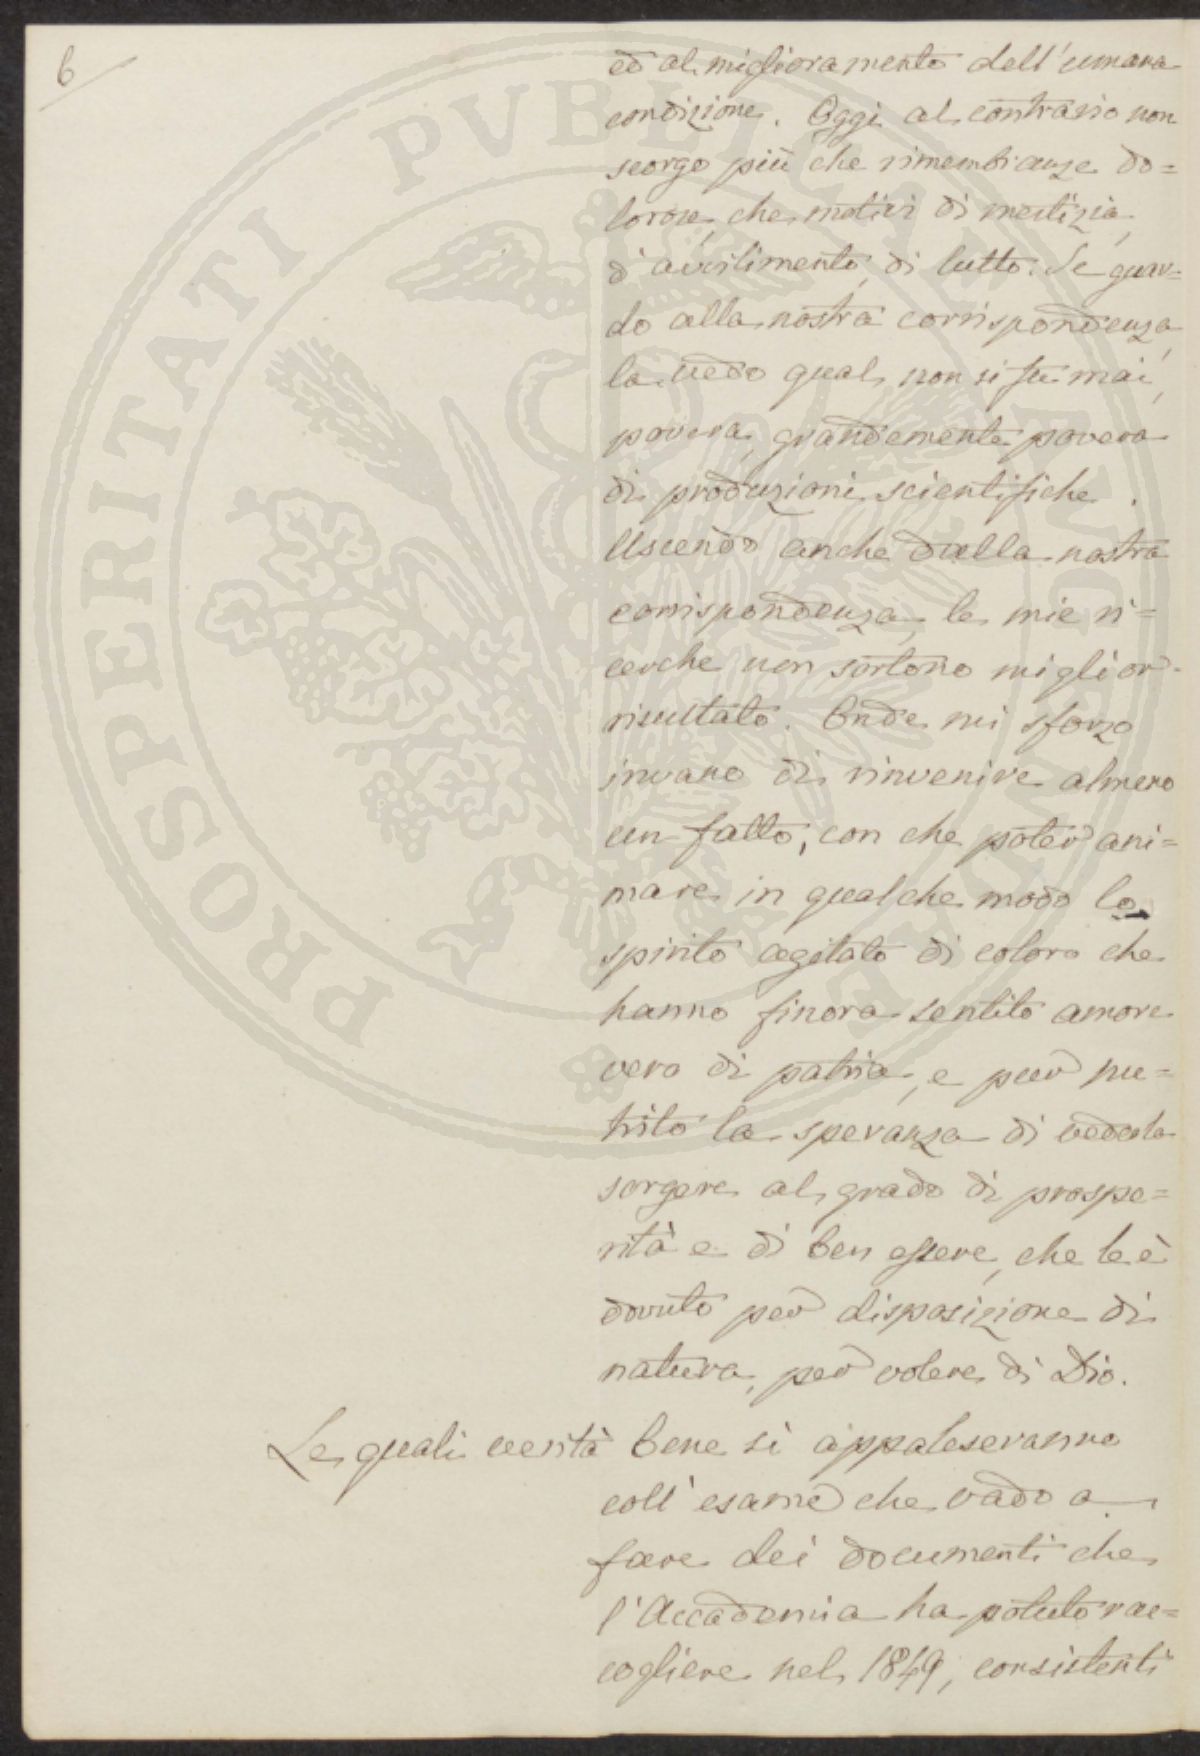 6
ed al miglioramento dell'umana
condizione. Oggi al contrario non
scorgo più che rimembranze do=
lorose, che motivi di mestizia,
d'avvilimento, di lutto. Se guar=
do alla nostra corrispondenza,
la vedo qual non si fu mai,
povera, grandemente povera
di produzioni scientifiche.
Uscendo anche dalla nostra
corrispondenza, le mie ri=
cerche non sortono miglior
risultato. Onde mi sforzo
invano di rinvenire almeno
un fatto, con che poter ani=
mare in qualche modo lo
spirito agitato di coloro che
hanno finora sentito amore
vero di patria, e pur nu=
trito la speranza di vederla
sorgere al grado di prospe=
rità e di ben essere, che le è
dovuto per disposizione di
natura, per volere di Dio.
Le quali verità bene si appaleseranno
coll'esame che vado a
fare dei documenti che
l'Accademia ha potuto rac=
cogliere nel 1849, consistenti
PROSPERITATI PVBLICAE AVGENDAE